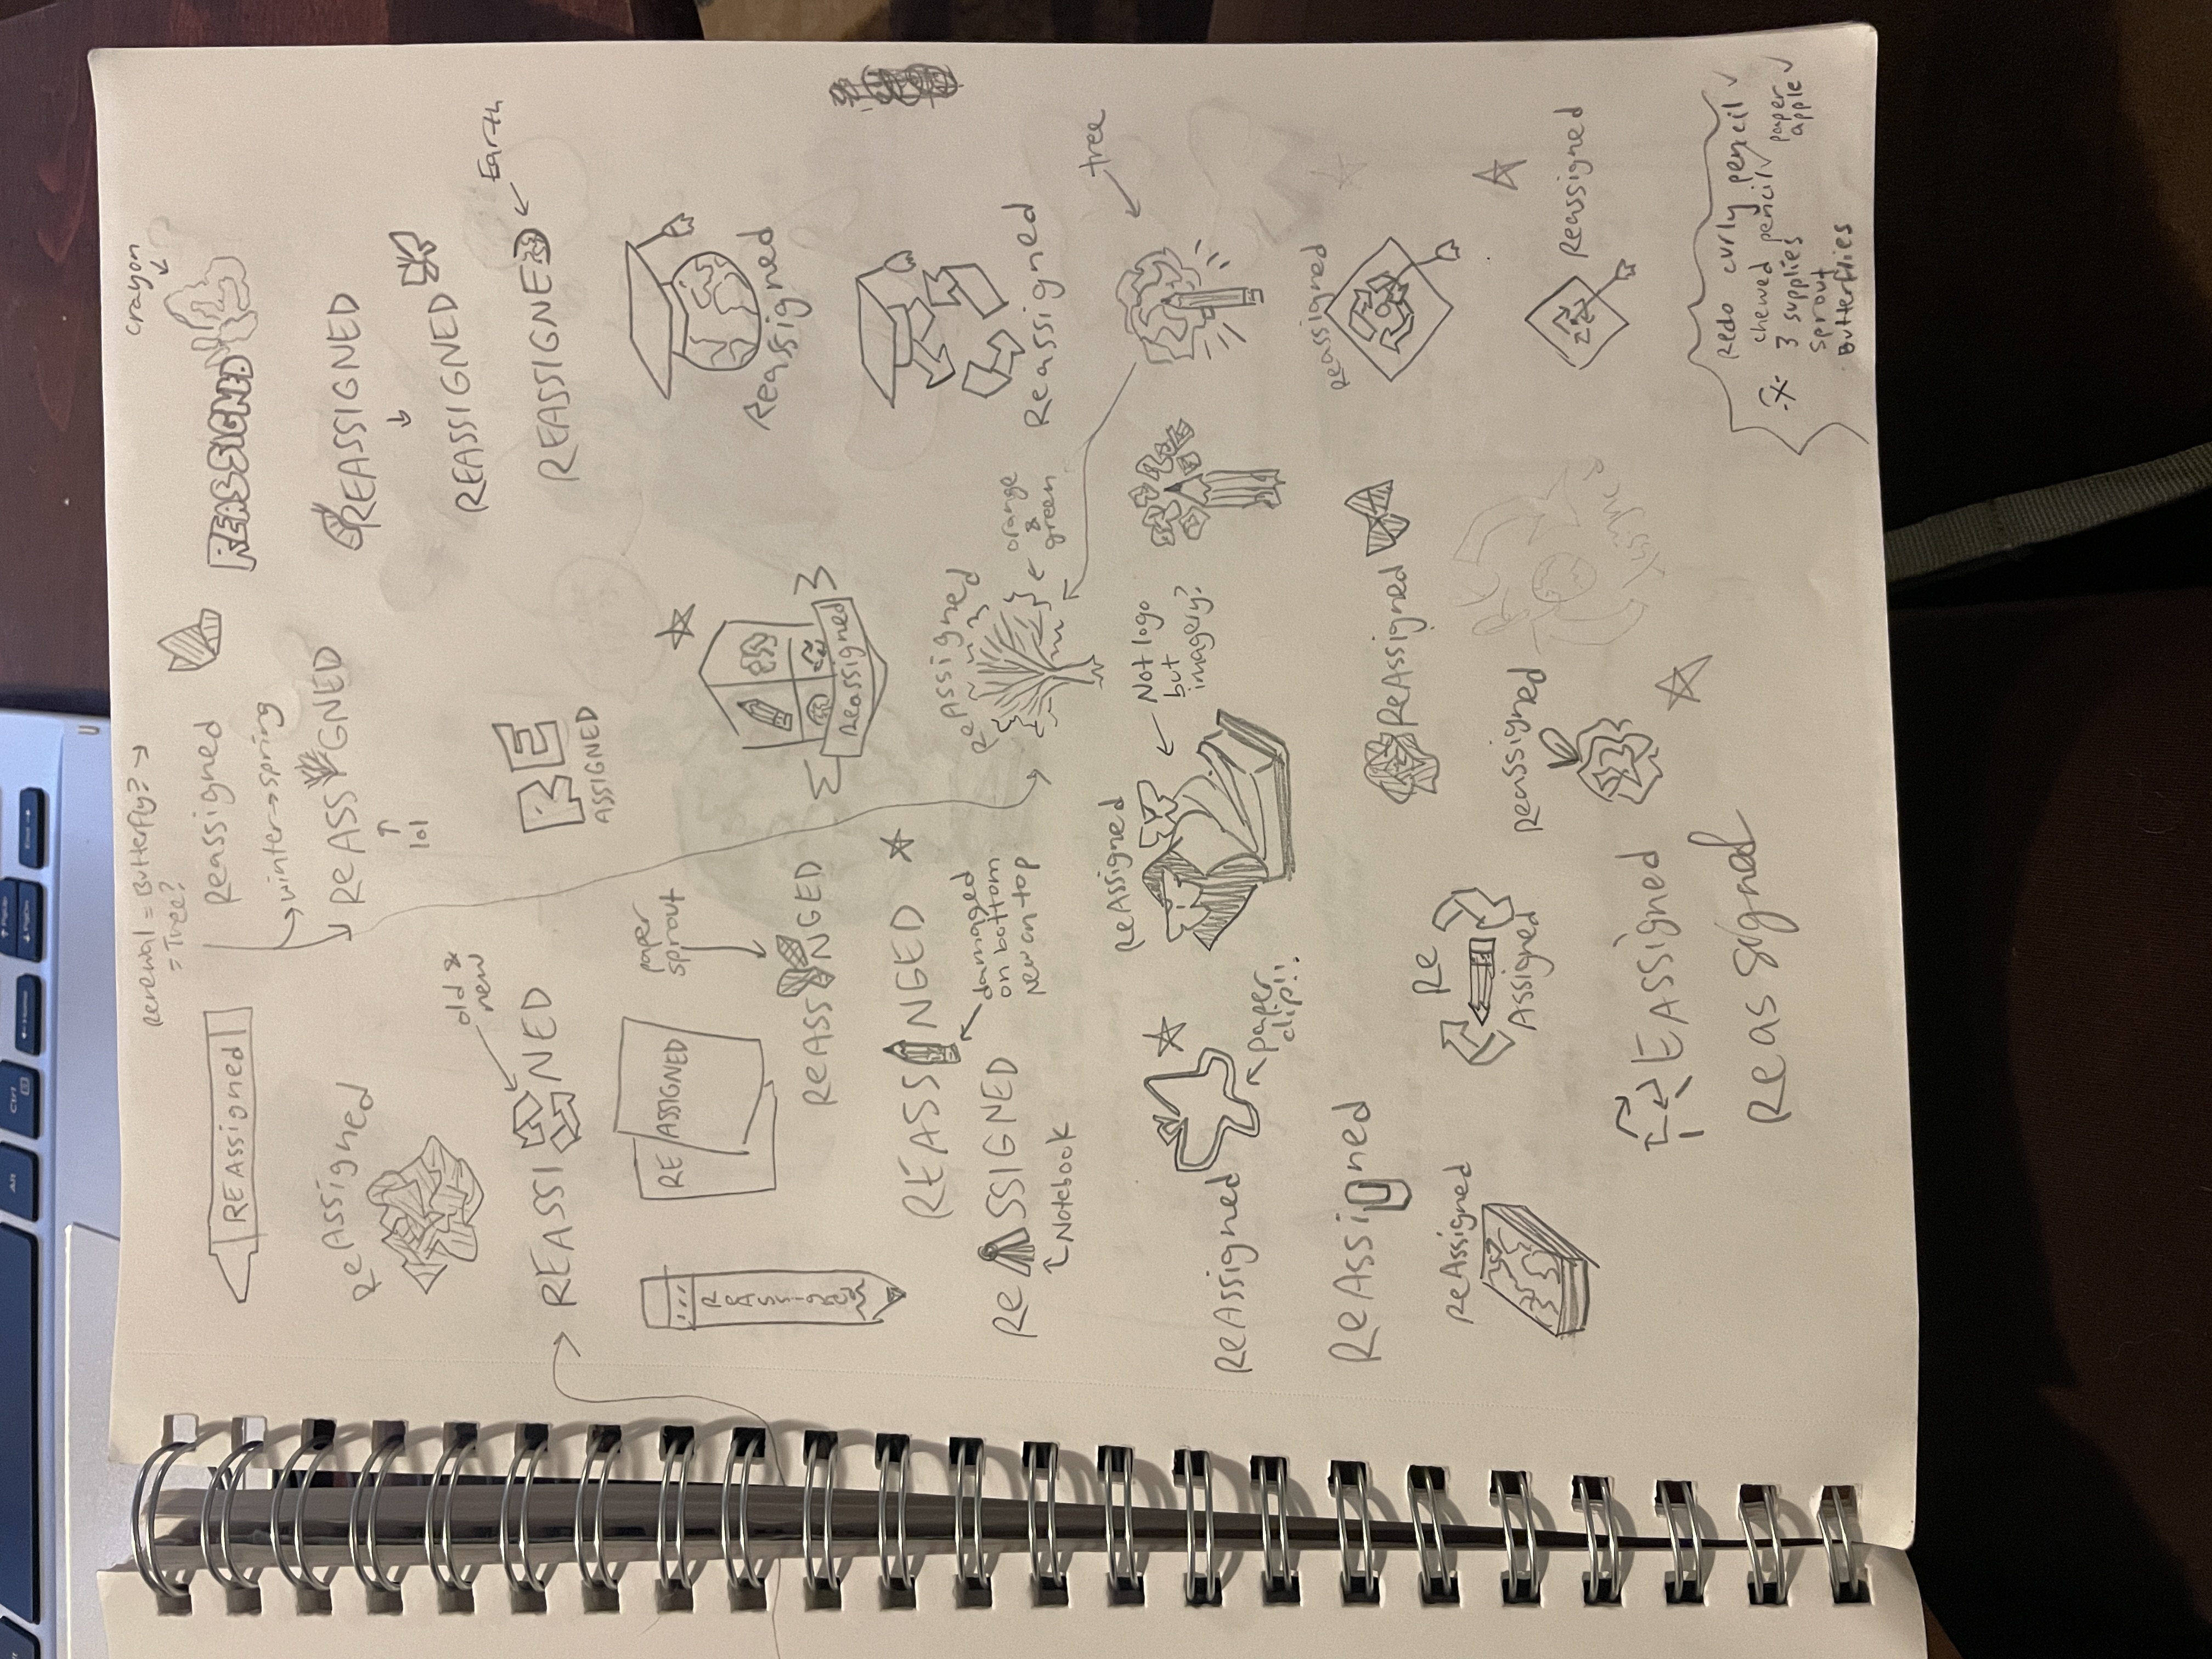 Alt
Ctrl
← Home
↑ PgUp
↓ PgDn
End →
Renewal = Butterfly? →
= Tree?
crayon
REAssigned
Reassigned
REASSIGNED
winter → spring
ReAssigned
ReASS GNED
lol
REASSIGNED
REASSIGNED
old &
new
Earth
REASSI NED
RE
ASSIGNED
REASSIGNE
ReAssigned
RE ASSIGNED
paper
sprout
ReASS NGED
Reassigned
Reassigned
REASS NGED
damaged
on bottom
new on top
Re SSIGNED
Notebook
ReAssigned
orange
&
green
Reassigned
tree
ReAssigned
Not logo
but
imagery?
ReAssigned
paper
clip!!
ReAssigned
Reassigned
ReAssigned
ReAssigned
Re
Assigned
Reassigned
RE
Assigned
Reassigned
EAssigned
Reassigned
Redo curly pencil ✓
chewed pencil ✓
3 supplies
paper
apple ✓
sprout
Butterflies